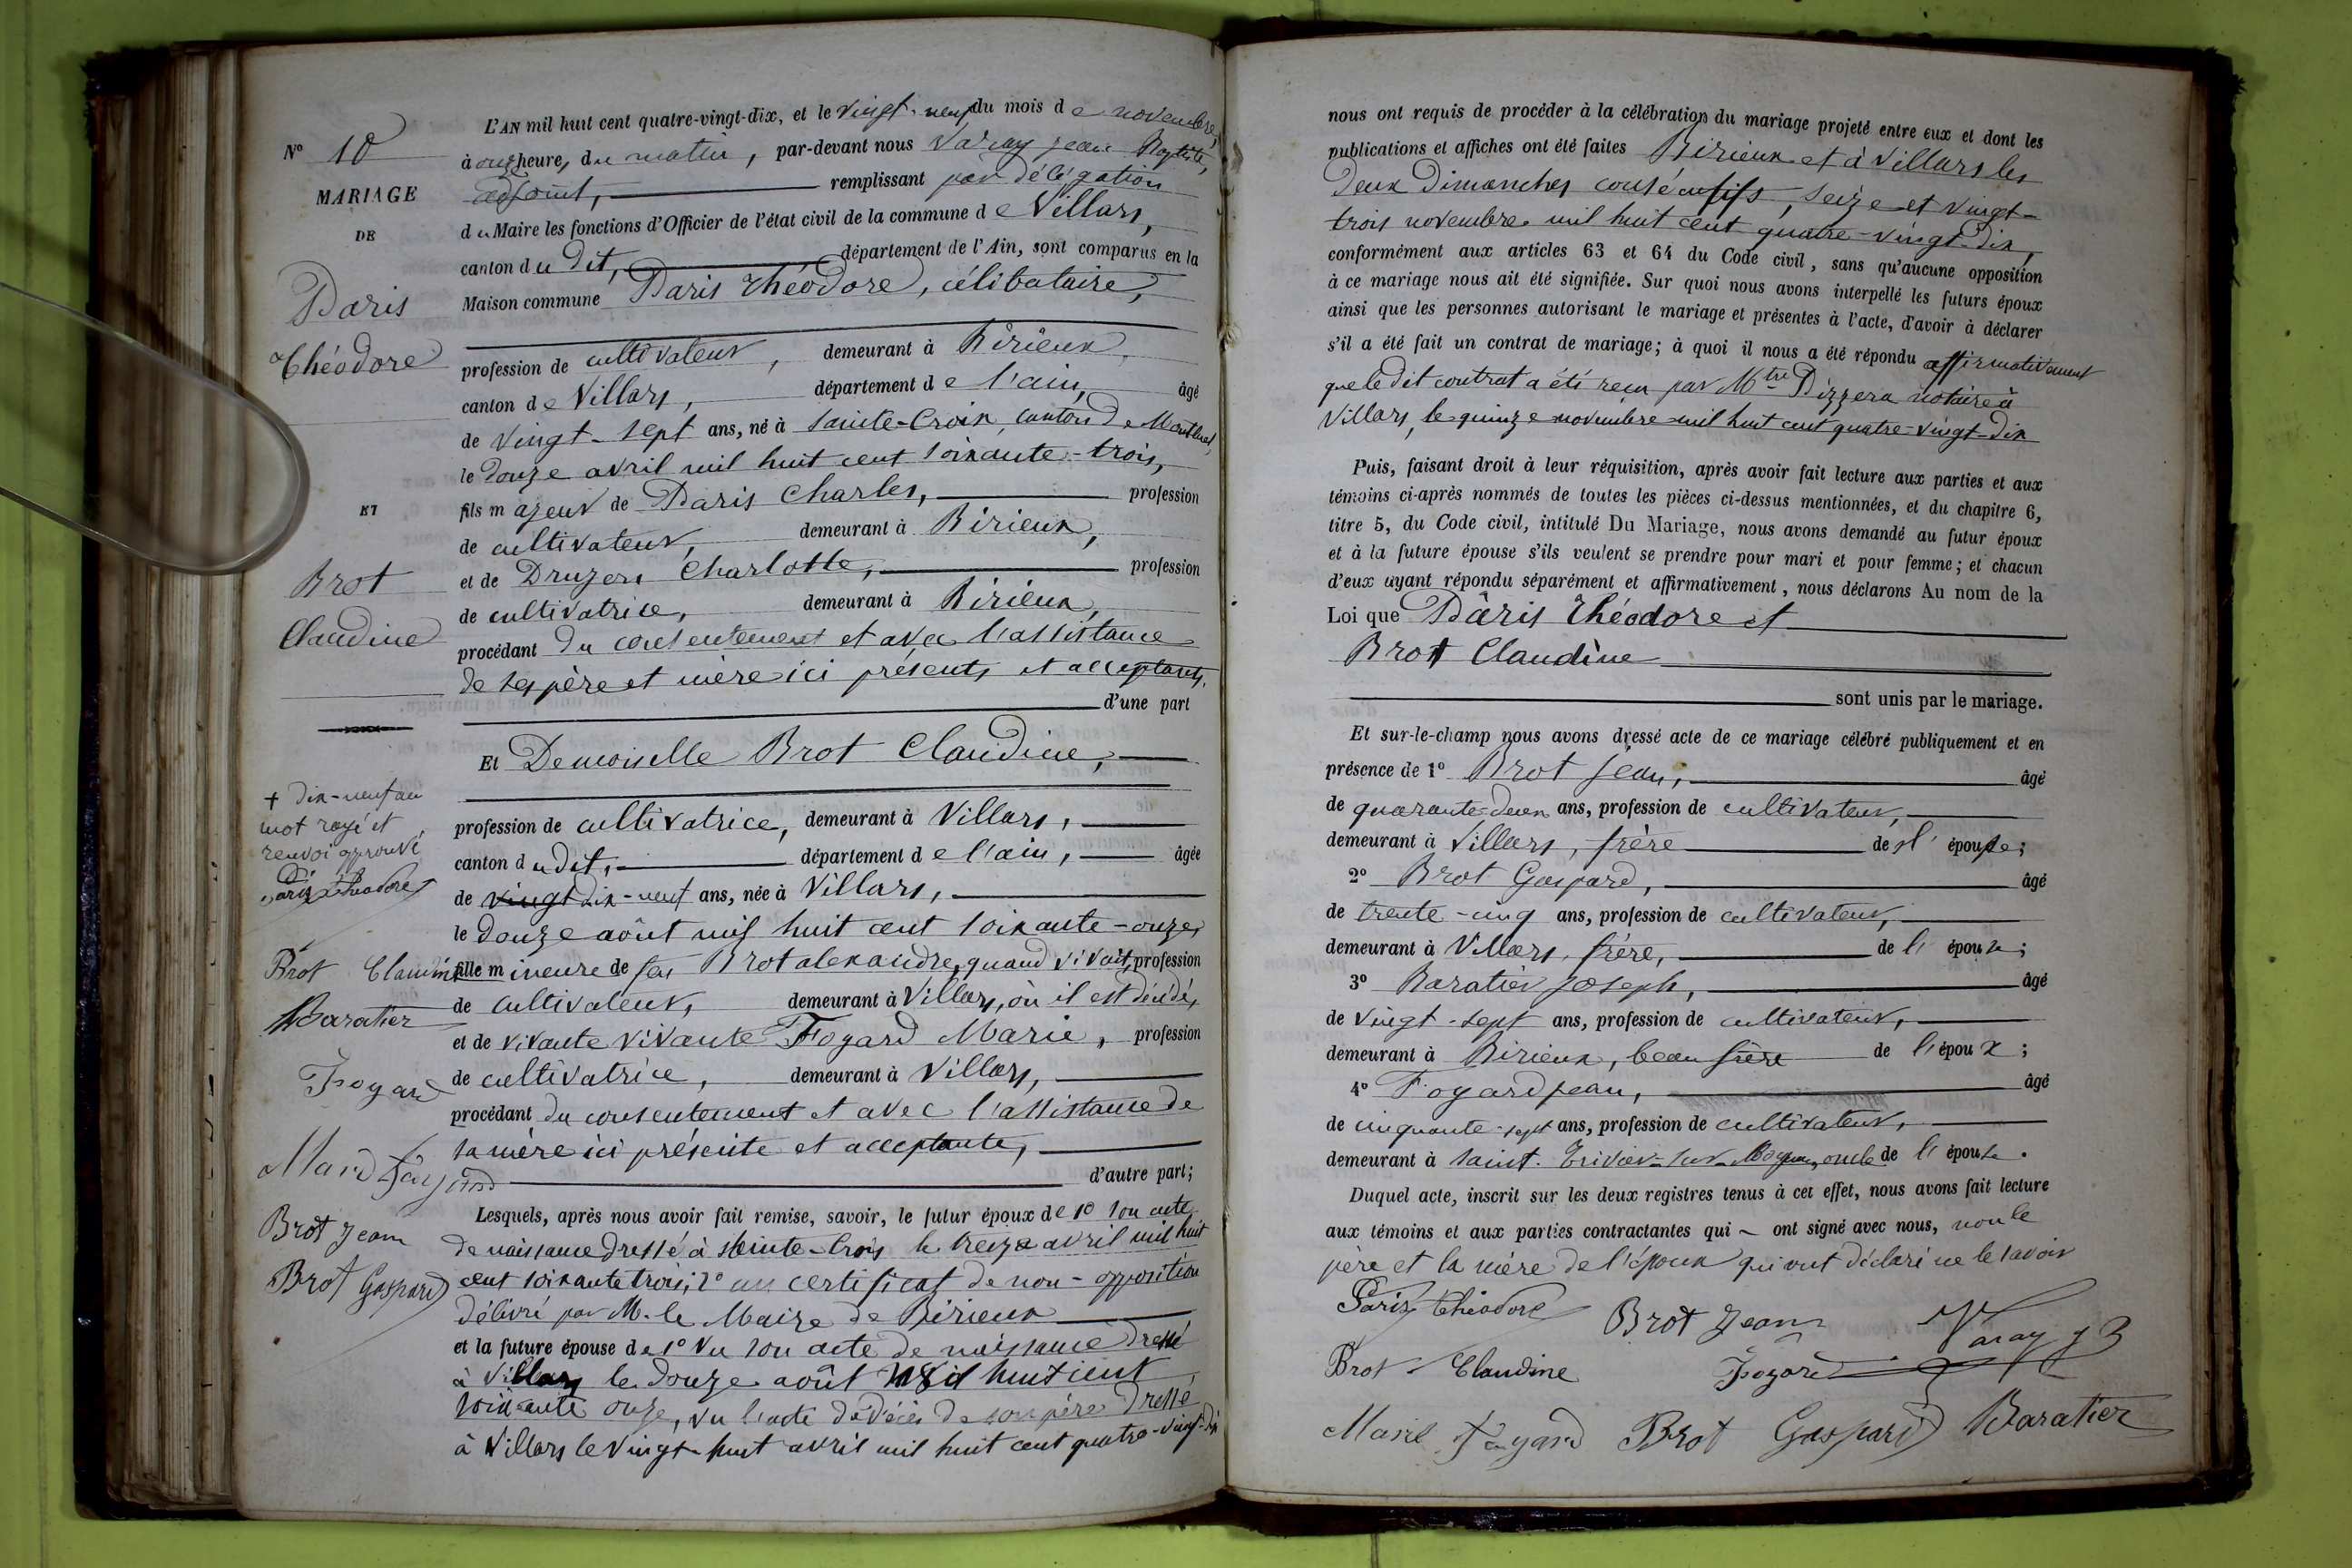 L'AN mil huit cent quatre-vingt-dix, et le vingt-neuf du mois de novembre,
à onze heures du matin, par-devant nous Varay Jean Baptiste,
adjoint, remplissant par délégation
du Maire les fonctions d'Officier de l'état civil de la commune de Villars,
canton du dit, département de l'Ain, sont comparus en la
Maison commune Paris Théodore, célibataire,
profession de cultivateur, demeurant à Birieux,
canton de Villars, département de l'ain, âgé
de vingt-sept ans, né à Sainte-Croix, canton de Montluel,
le douze avril mil huit cent soixante-trois,
fils majeur de Paris Charles, profession
de cultivateur, demeurant à Birieux,
et de Druzen Charlotte, profession
de cultivatrice, demeurant à Birieux,
procédant du consentement et avec l'assistance
de ses père et mère ici présents et acceptants,
d'une part
Et Demoiselle Brot Claudine,
profession de cultivatrice, demeurant à Villars,
canton dudit, département de l'ain, âgée
de vingt dix-neuf ans, née à Villars,
le douze août mil huit cent soixante-onze,
fille mineure de feu Brot alexandre, quand vivait, profession
de cultivateur, demeurant à Villars, où il est décédé,
et de vivante vivante Foyard Marie, profession
de cultivatrice, demeurant à Villars,
procédant du consentement et avec l'assistance de
sa mère ici présente et acceptante,
d'autre part;
Lesquels, après nous avoir fait remise, savoir, le futur époux de 1º son acte
de naissance dressé à Sainte-Croix le treize avril mil huit
cent soixante trois; 2º un certificat de non-opposition
délivré par M. le Maire de Birieux
et la future épouse de 1º Vu son acte de naissance dressé
à Villars le douze août mil huit cent
soixante onze, vu l'acte de décès de son père dressé
à Villars le vingt-huit avril mil huit cent quatre-vingt-dix
Nº 10
MARIAGE
DE
Paris
Théodore
ET
Brot
Claudine
+ dix-neuf un
mot rayé et
renvoi approuvé
Paris Théodore
Brot Claudine
Baratier
Foyard
Marie Fayard
Brot Jean
Brot Gaspard
nous ont requis de procéder à la célébration du mariage projeté entre eux et dont les
publications et affiches ont été faites Birieux et à Villars les
deux Dimanches consécutifs, seize et vingt-
trois novembre mil huit cent quatre-vingt-dix,
conformément aux articles 63 et 64 du Code civil, sans qu'aucune opposition
à ce mariage nous ait été signifiée. Sur quoi nous avons interpellé les futurs époux
ainsi que les personnes autorisant le mariage et présentes à l'acte, d'avoir à déclarer
s'il a été fait un contrat de mariage; à quoi il nous a été répondu affirmativement
que le dit contrat a été reçu par Mtre Pizzera notaire à
Villars, le quinze novembre mil huit cent quatre-vingt-dix
Puis, faisant droit à leur réquisition, après avoir fait lecture aux parties et aux
témoins ci-après nommés de toutes les pièces ci-dessus mentionnées, et du chapitre 6,
titre 5, du Code civil, intitulé Du Mariage, nous avons demandé au futur époux
et à la future épouse s'ils veulent se prendre pour mari et pour femme; et chacun
d'eux ayant répondu séparément et affirmativement, nous déclarons Au nom de la
Loi que Pâris Théodore et
Brot Claudine
sont unis par le mariage.
Et sur-le-champ nous avons dressé acte de ce mariage célébré publiquement et en
présence de 1º Brot Jean, âgé
de quarante-deux ans, profession de cultivateur,
demeurant à Villars, frère de l'épouse;
2º Brot Gaspard, âgé
de trente-cinq ans, profession de cultivateur,
demeurant à Villars, frère, de l'épouse;
3º Baratier Joseph, âgé
de vingt-sept ans, profession de cultivateur,
demeurant à Birieux, beau frère de l'époux;
4º Foyard Jean, âgé
de cinquante-sept ans, profession de cultivateur,
demeurant à Saint-Trivier-sur-Moignans, oncle de l'épouse.
Duquel acte, inscrit sur les deux registres tenus à cet effet, nous avons fait lecture
aux témoins et aux parties contractantes qui ont signé avec nous, non le
père et la mère de l'époux qui ont déclaré ne le savoir
Paris Théodore Brot Jean Varay J B
Brot Claudine Foyard
Marie Fayard Brot Gaspard Baratier